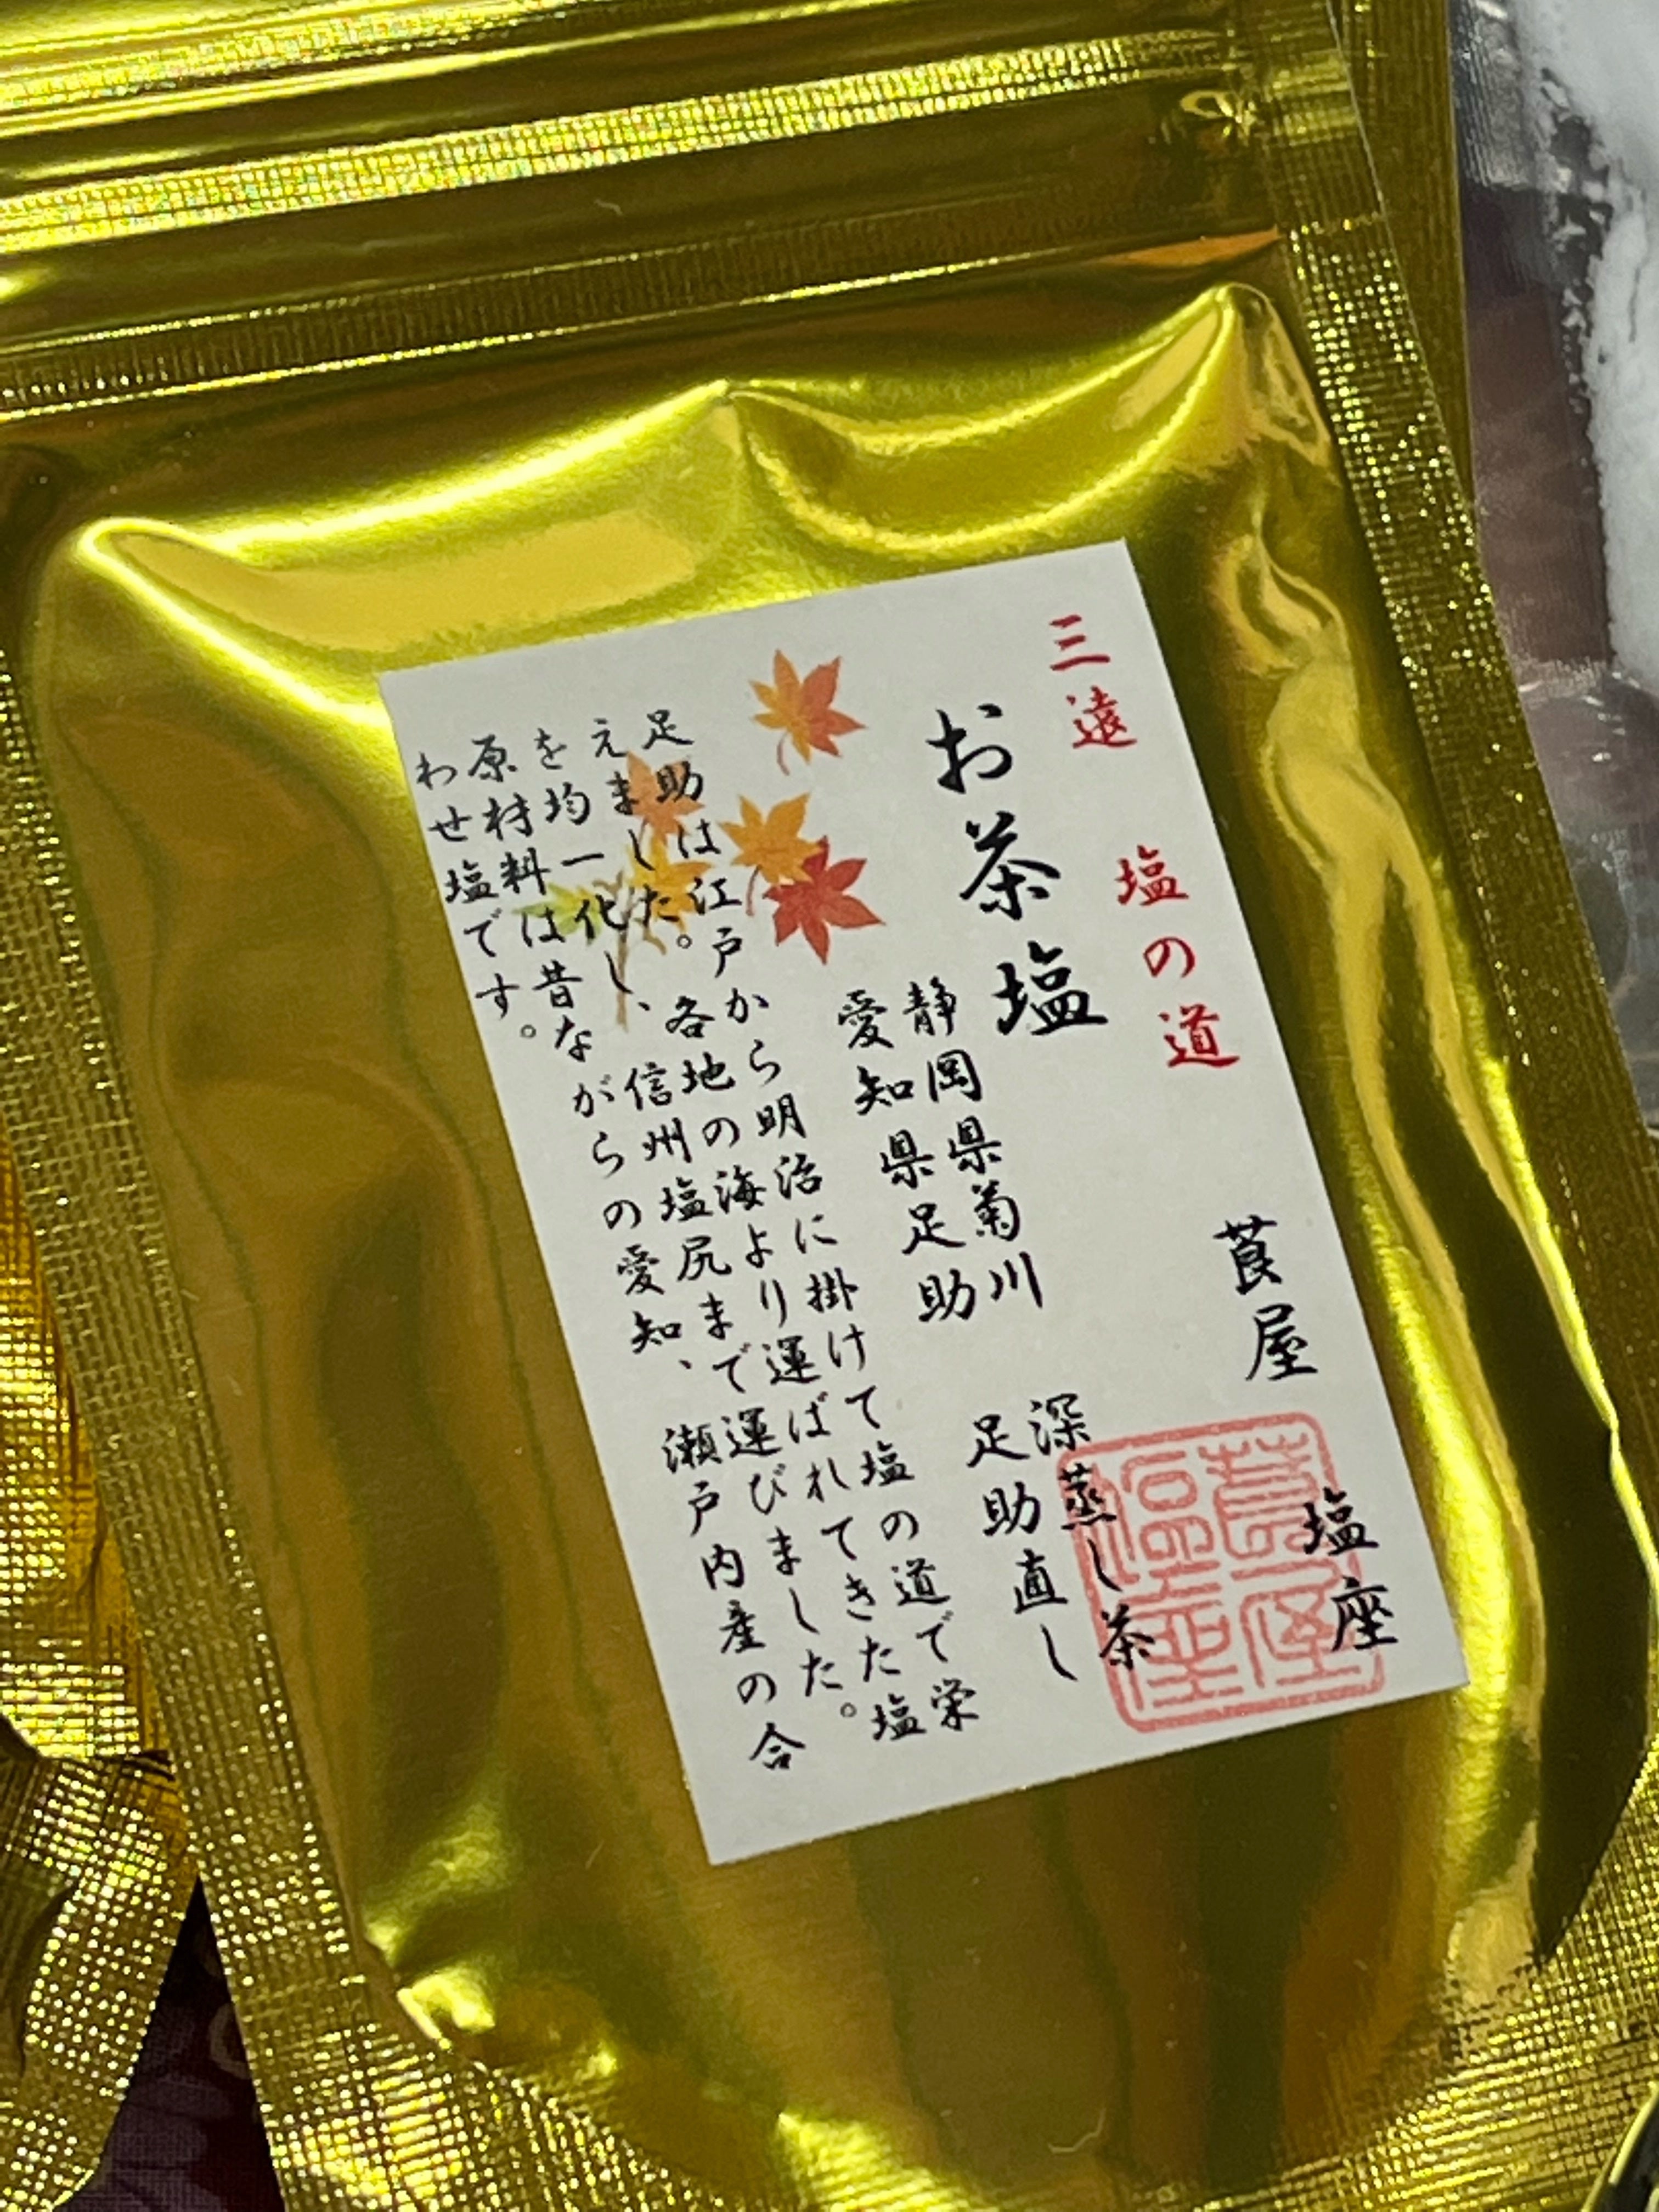 三遠 塩の道
莨屋 塩座
お茶塩
静岡県菊川 深蒸し茶
愛知県足助 足助直し
足助は江戸から明治に掛けて塩の道で栄
えました。各地の海より運ばれてきた塩
を均一化し、信州塩尻まで運びました。
原材料は昔ながらの愛知、瀬戸内産の合
わせ塩です。
莨屋
塩座